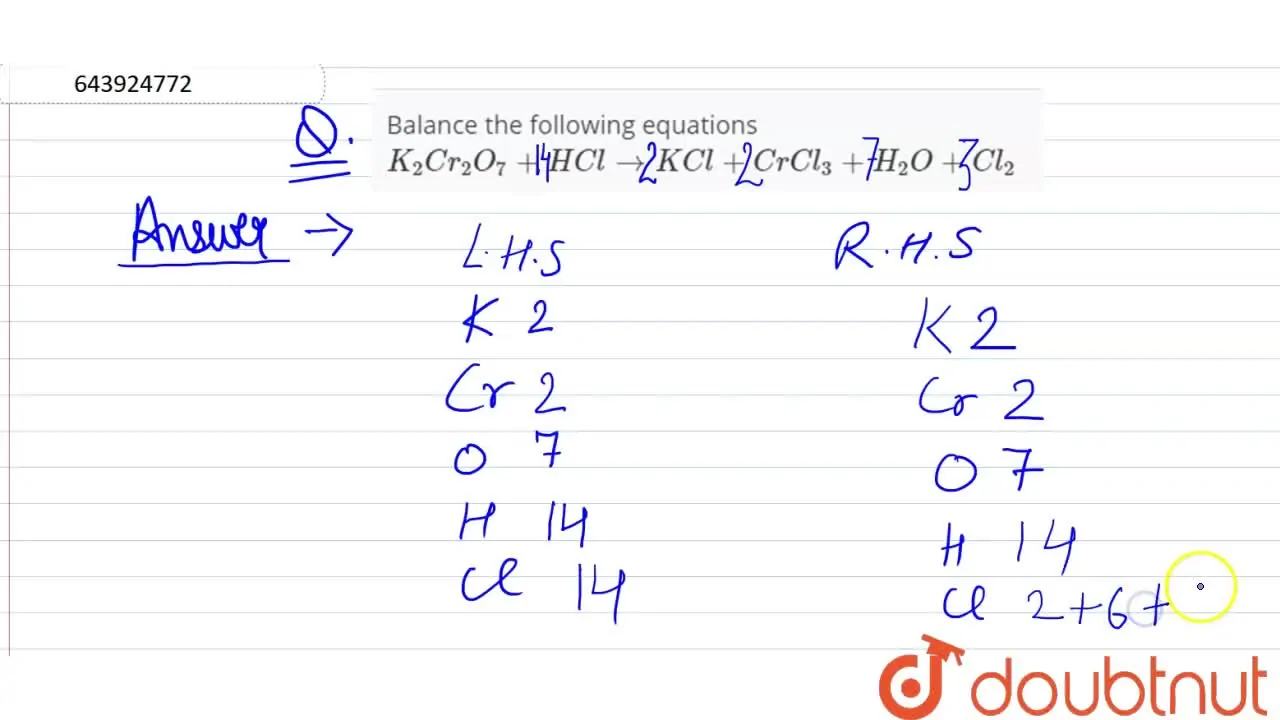 643924772
Q. Balance the following equations
K₂Cr₂O₇ + 14HCl → 2KCl + 2CrCl₃ + 7H₂O + 3Cl₂
Answer →
L.H.S R.H.S
K 2 K 2
Cr 2 Cr 2
O 7 O 7
H 14 H 14
Cl 14 Cl 2+6+
doubtnut